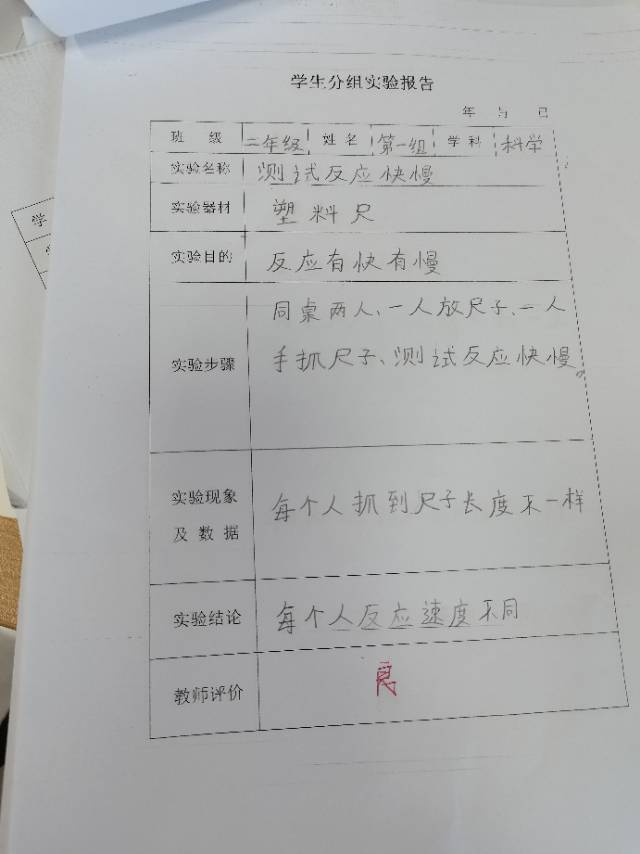 学生分组实验报告
年 月 日
班 级 二年级 姓名 第一组 学科 科学
实验名称 测试反应快慢
实验器材 塑料尺
实验目的 反应有快有慢
同桌两人、一人放尺子、一人
实验步骤 手抓尺子、测试反应快慢。
实验现象
及 数 据 每个人抓到尺子长度不一样
实验结论 每个人反应速度不同
教师评价 良
学